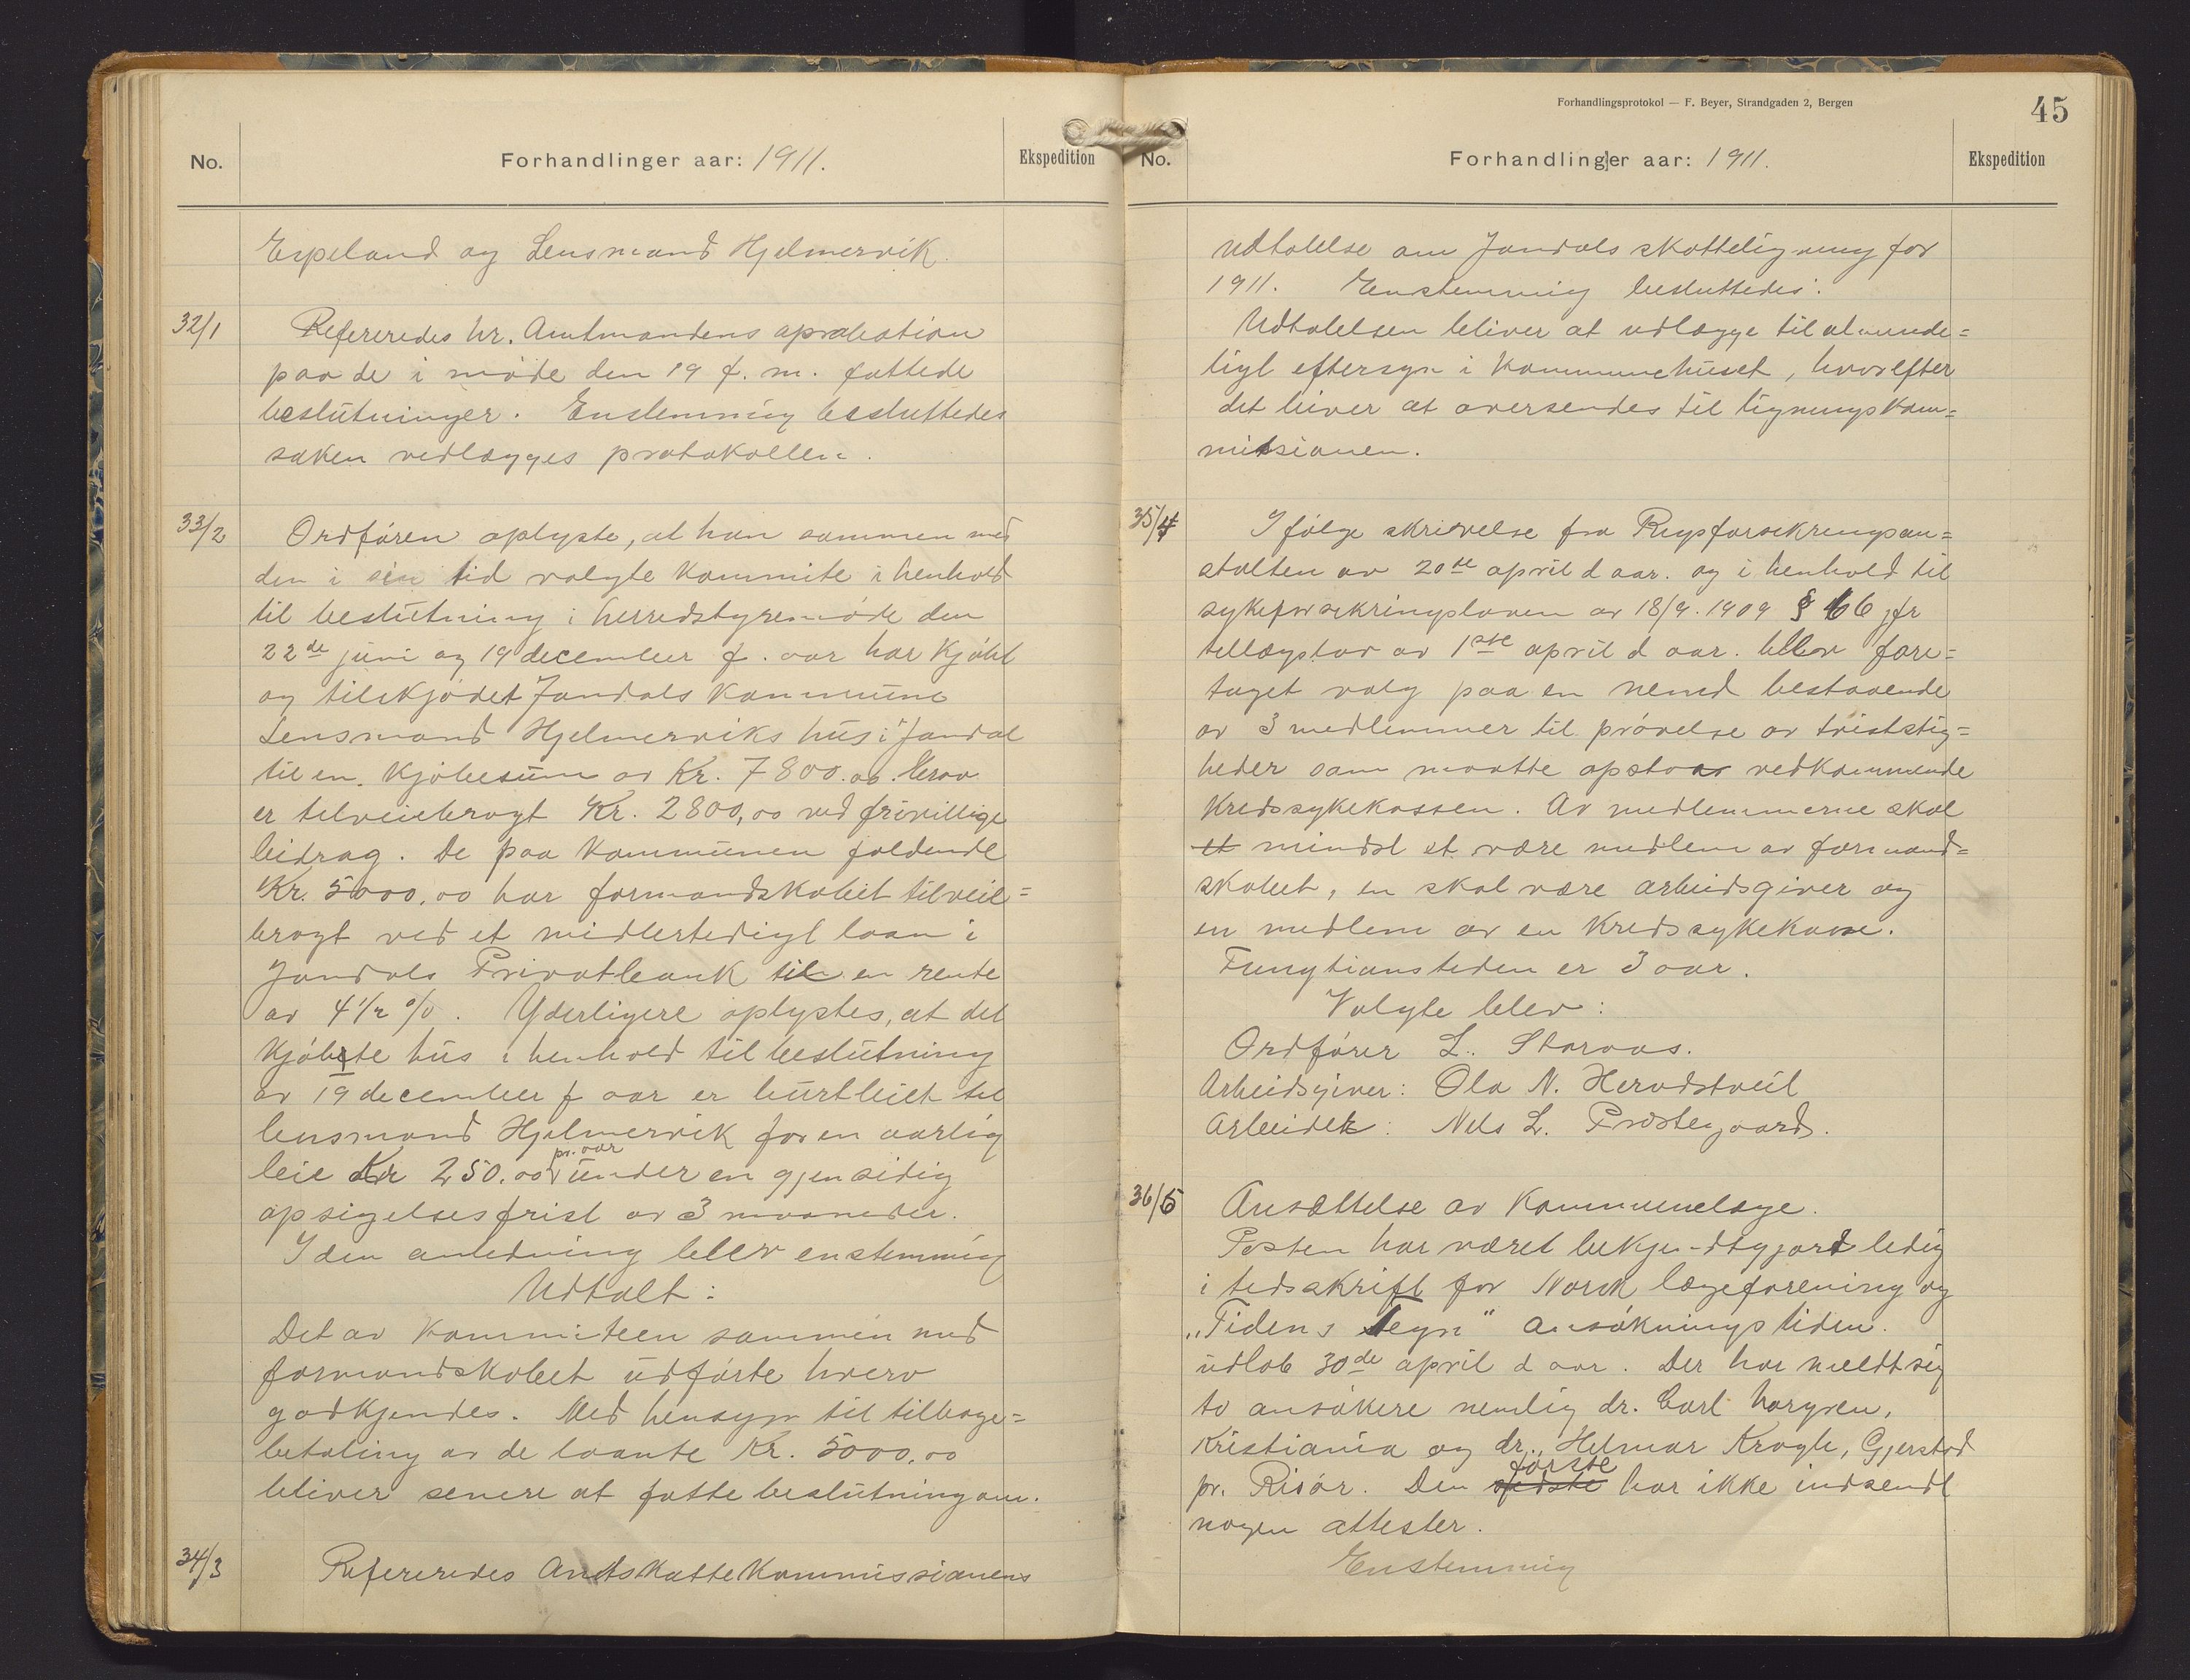 No.
Forhandlinger aar: 1911.
Ekspedition
Espeland og Lensmand Hjelmervik.
32/1 Refereredes hr. Amtmandens aprobation
paa de i møde den 19 f. m. fattede
beslutninger. Enstemmig besluttedes
saken vedlægges protokollen.
33/2 Ordføren oplyste, at han sammen med
den i sin tid valgte kommite i henhold
til beslutning i herredstyremøde den
22de juni og 19 december f. aar har kjøbt
og tilskjødet Jondals kommune
Lensmand Hjelmerviks hus i Jondal
til en kjøbesum av Kr. 7800.00 hvorav
er tilveiebragt Kr. 2800,00 ved frivillige
bidrag. De paa kommunen faldende
Kr. 5000.00 har formandskabet tilveie=
bragt ved et midlertidigt laan i
Jondals Privatbank til en rente
av 4 1/2 %. Yderligere oplystes, at det
kjøbte hus i henhold til beslutning
av 19 december f aar er burtleiet til
lensmand Hjelmervik for en aarlig
leie Kr 250.00 pr. aar under en gjensidig
opsigelsesfrist av 3 maaneder.
I den anledning blev enstemmig
Udtalt:
Det av kommiteen sammen med
formandskabet udførte hverv
godkjendes. Med hensyn til tilbage=
betaling av de laante Kr. 5000.00
bliver senere at fatte beslutning om.
34/3 Refereredes Amtskattekommissionens
Forhandlingsprotokol — F. Beyer, Strandgaden 2, Bergen
45
No.
Forhandlinger aar: 1911.
Ekspedition
udtalelse om Jondals skatteligning for
1911. Enstemmig besluttedes:
Udtalelsen bliver at udlægge til alminde=
ligt eftersyn i kommunehuset, hvorefter
det bliver at oversendes til ligningskom=
missionen.
35/4 Ifølge skrivelse fra Rigsforsekringsan=
stalten av 20de april d aar. og i henhold til
sykeforsekringsloven av 18/9. 1909 § 66 jfr
tillægslov av 1ste april d aar. blev fore=
taget valg paa en nemd bestaaende
av 3 medlemmer til prøvelse av tvistig=
heder som maatte opstaa vedkommende
Kredssykekassen. Av medlemmerne skal
et mindst et være medlem av formand=
skabet, en skal være arbeidsgiver og
en medlem av en Kredssykekasse.
Fungtionstiden er 3 aar.
Valgte blev:
Ordfører L. Storaas.
Arbeidsgiver: Ola N. Herodstveit
Arbeider: Nils L. Prestegaard.
36/5 Ansættelse av Kommunelæge.
Posten har været bekjendtgjort ledig
i tidsskrift for Norsk lægeforening og
„Tidens Tegn" Ansøkningstiden
udløb 30de april d aar. Der har meldt sig
to ansøkere nemlig dr. Carl
Kristiania og dr. Helmar Krogh, Gjerstad
pr. Risør. Den sidste første har ikke indsendt
nogen attester.
Enstemmig